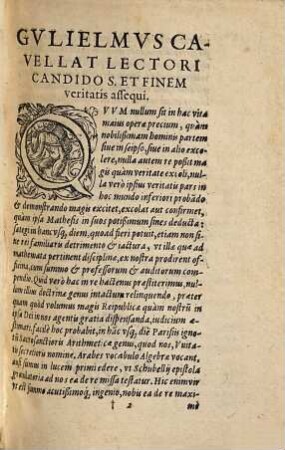 GVLIELMVS CA-
VELLAT LECTORI
CANDIDO S. ET FINEM
veritatis assequi.
QVVM nullum sit in hac vita
maius operæprecium, quàm
nobilissimam hominis partem
siue in seipso, siue in alio excolere,
nulla autem re possit magis
quàm veritate excoli, nulla
verò ipsius veritatis pars in
hoc mundo inferiori probãdo
& demonstrando magis excitet, excolat aut confirmet,
quàm ipsa Mathesis in suos potissimum fines deducta:
sategi in hanc vsq; diem, quoad fieri potuit, etiam non sine
rei familiaris detrimento & iactura, vt illæ quæ ad
mathemata pertinent disciplinæ, ex nostra prodirent officina,
cum summo & professorum & auditorum compendio.
Quid verò hac in re hactenus præstiterimus, nullum
illius doctrinæ genus intactum relinquendo, præter
quam quòd volumus magis Reipublicæ quàm nostrũ in
ipsa Dei in nos agentis gratia dispensanda, iudicium æstimari,
facilè hoc probabit, in hãc vsq; diẽ Parisiis ignotũ
sacrosanctioris Arithmeticæ genus, quod nos,
secretioris nomine, Arabes vocabulo Algebræ vocant,
ausi sumus in lucem primi edere, vt Schubelij epistola
gratulatoria ad nos ea de re missa testatur. Hic enim vir
vt est summo acutissimoq; ingenio, nobis ea de re maxi-
† 2 mè